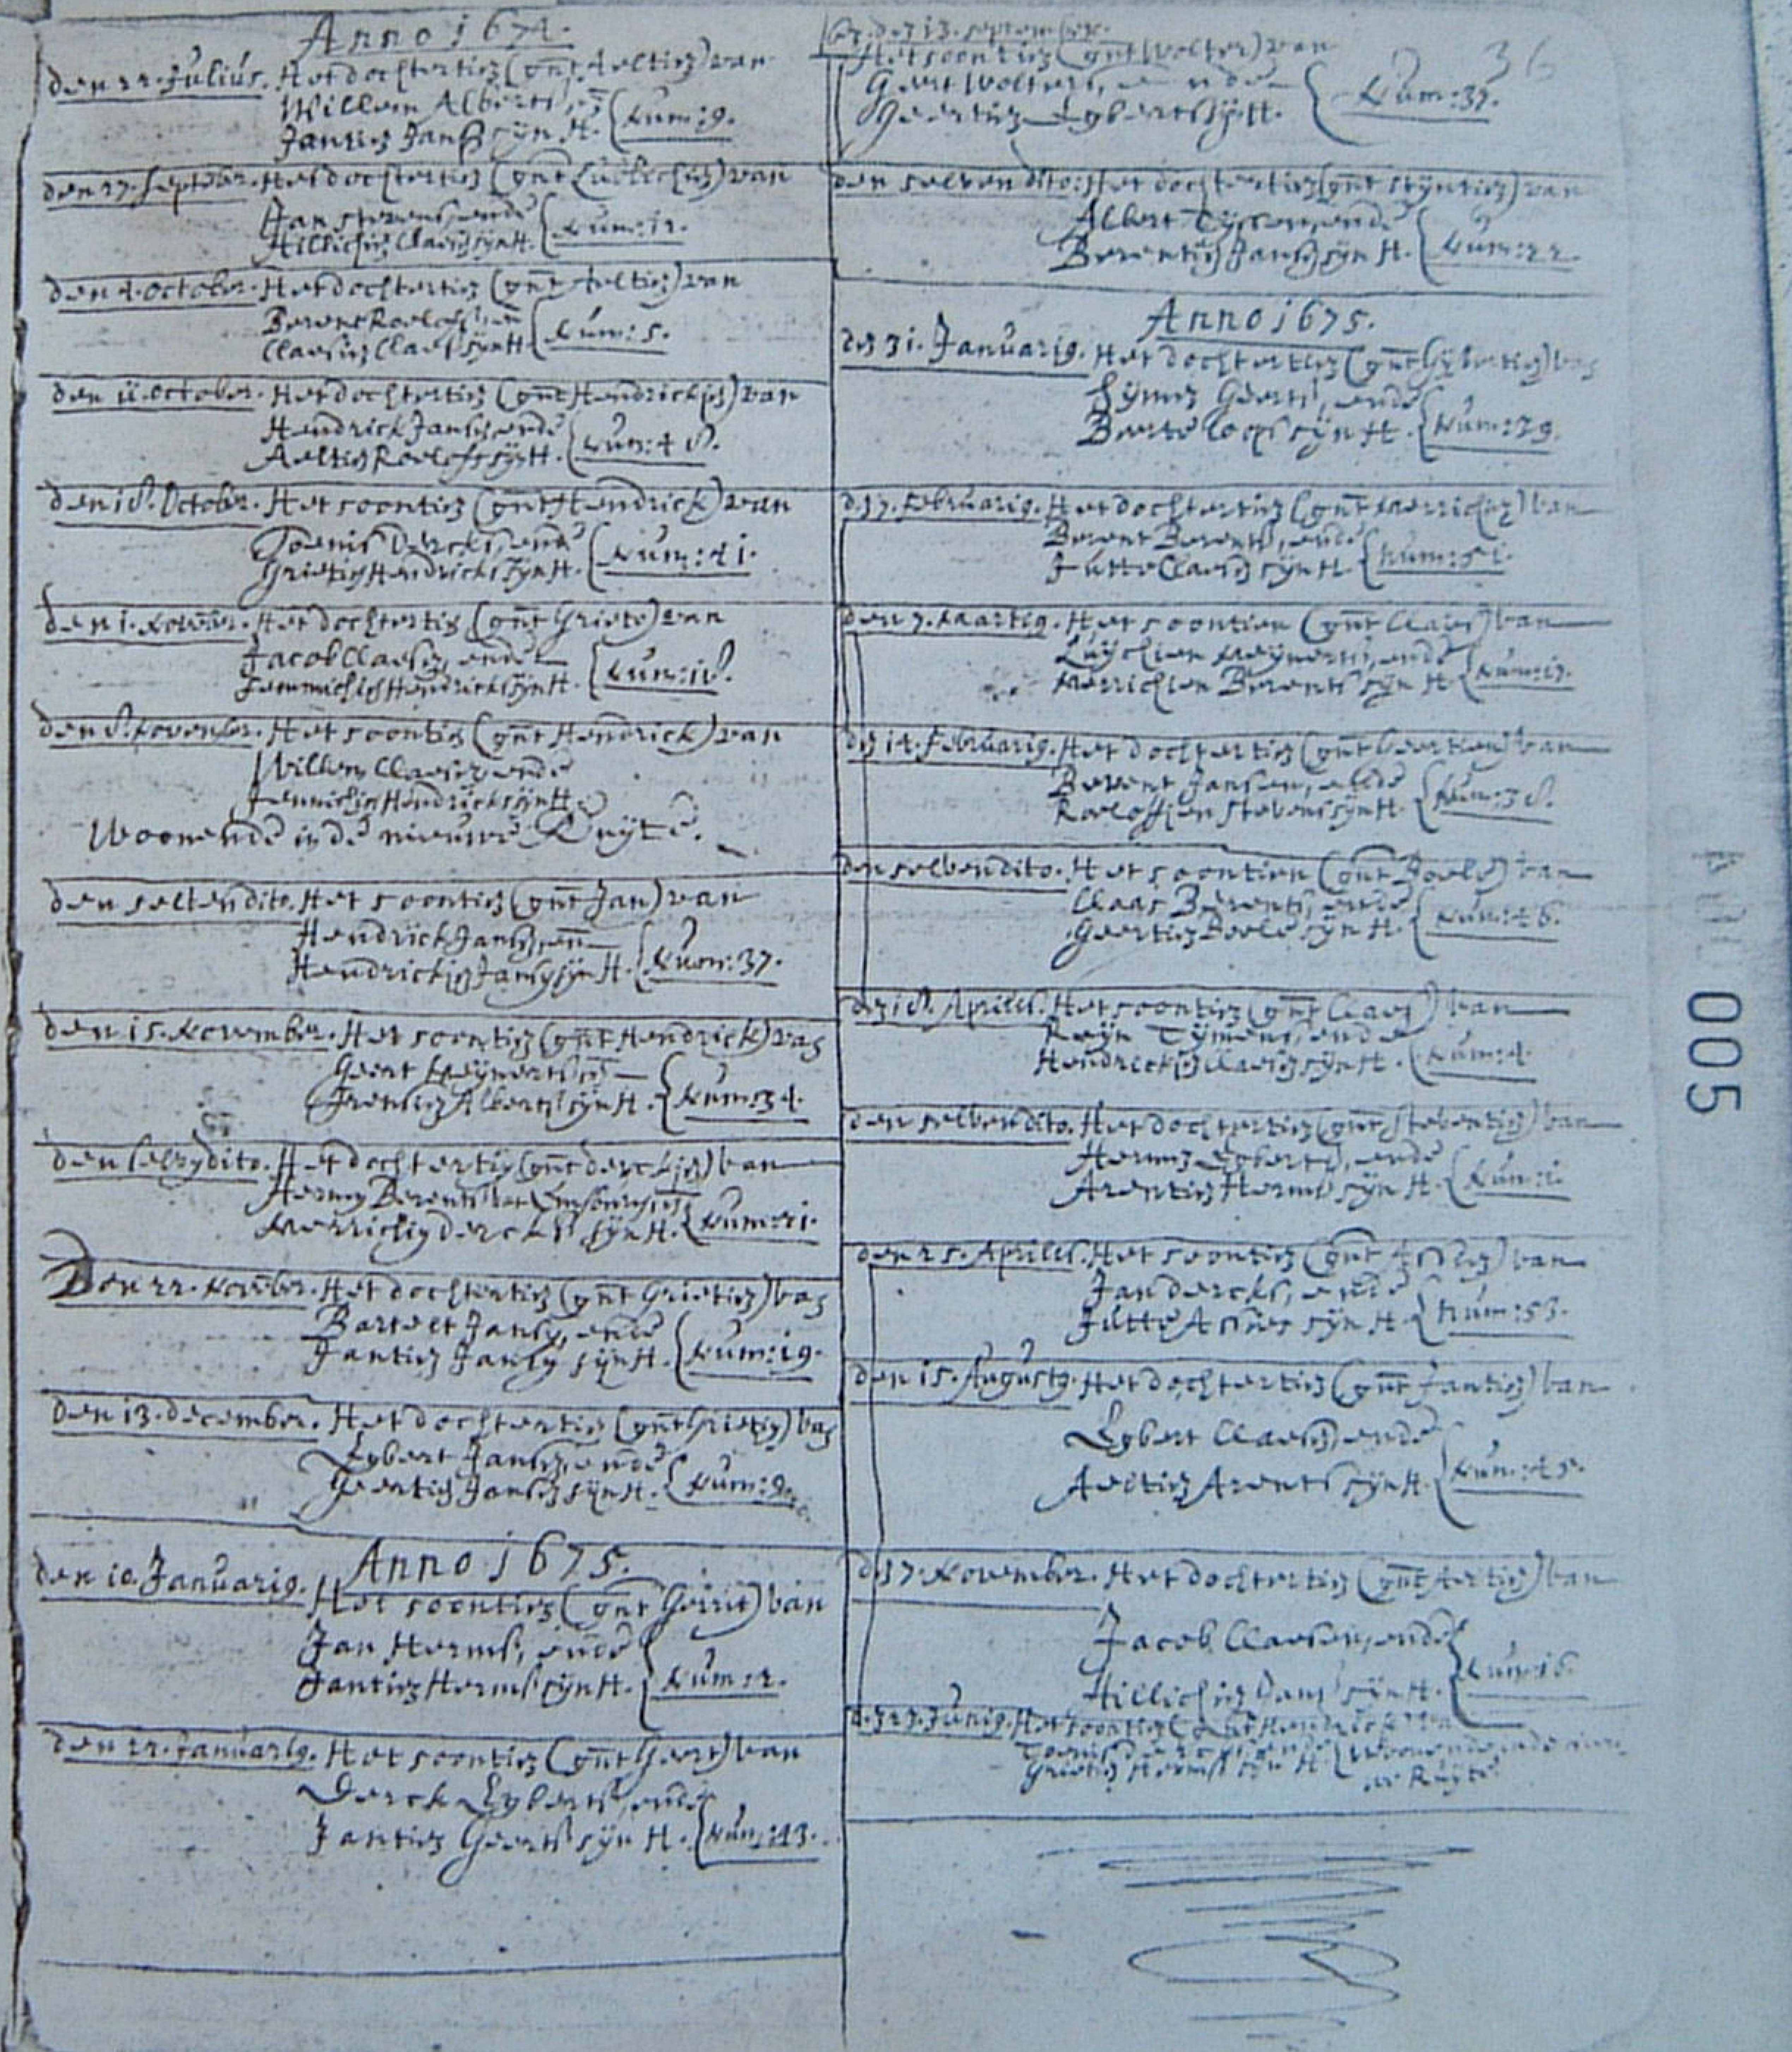 Anno 1674.
den 22. Julius. Het dochtertien (gnt Aeltien) van
Willem Alberts, en
Jantien Jansz syn H. Num: 9.
den 27. Septēber. Het dochtertien (gnt Lublichien) van
Jan Stevens, ende
Hillichien Claesz syn H. Num: 12.
den 4. October. Het dochtertien (gnt Aeltien) van
Berent Roelofs, en
Claesien Claes syn H. Num: 5.
den 11. October. Het dochtertien (gnt Hendrickien) van
Hendrick Jansz, ende
Aeltien Roelofs syn H. Num: 48.
den 18. October. Het soontien (gnt Hendrick) van
Toenis Dercks, ende
Grietien Hendricks syn H. Num: 41.
den 1. Novēber. Het dochtertien (gnt Griete) van
Jacob Claesz, ende
Jemmichien Hendricks syn H. Num: 18.
den 8. November. Het soontien (gnt Hendrick) van
Willem Claesz, ende
Jennichien Hendricks syn H.
Woonende in de nieuwe Ruyte.
den selven dito. Het soontien (gnt Jan) van
Hendrick Jansz, en
Hendrickien Jansz syn H. Num: 37.
den 15. November. Het soontien (gnt Hendrick) van
Geert Meynerts, en
Jrensien Alberts syn H. Num: 34.
den selven dito. Het dochtertien (gnt derckien) van
Hermen Berents van
Merrichien dercks syn H. Num: 21.
Den 22. Novēber. Het dochtertien (gnt Grietien) van
Bartelt Jansz, ende
Jantien Jansz syn H. Num: 19.
Den 13. december. Het dochtertien (gnt Grietien) van
Egbert Jansz, ende
Geertien Jansz syn H. Num:
Anno 1675.
den 10. Januarig. Het soontien (gnt Gerrit) van
Jan Herms, ende
Jantien Herms syn H. Num: 2.
den 22. Januarig. Het soontien (gnt Geert) van
Derck Egberts, ende
Jantien Geerts syn H. Num: 43.
den 13. September.
Het soontien (gnt Wolter) van
Geert Wolters, ende
Geertien Egberts syn H. Num: 37.
36
den selven dito: Het dochtertien (gnt Styntien) van
Albert Tyssen, ende
Berentien Jansz syn H. Num: 22.
Anno 1675.
den 31. Januarig. Het dochtertien (gnt Gybertien) van
Symen Geerts, ende
Berte Loops syn H. Num: 29.
d. 7. Februarig. Het dochtertien (gnt Merrichien) van
Berent Berents, ende
Jutte Claesz syn H. Num: 51.
den 7. Maartig. Het soontien (gnt Claes) van
Luychien Meynerts, ende
Merrichien Berents syn H. Num: 17.
den 14. Februarig. Het dochtertien (gnt Geertien) van
Berent Jansen, ende
Roeloffien Stevens syn H. Num: 38.
den selven dito. Het soontien (gnt Roele) van
Claas Berents, ende
Geertien Roele syn H. Num: 46.
den 18. Aprilis. Het soontien (gnt Claes) van
Reyn Tymens, ende
Hendrickien Claesz syn H. Num: 4.
den selven dito. Het dochtertien (gnt Steventien) van
Hermen Egberts, ende
Arentien Herms syn H. Num: 1.
den 25. Aprilis. Het soontien (gnt Assien) van
Jan dercks, ende
Jutte Assies syn H. Num: 53.
den 15. Augustg. Het dochtertien (gnt Jantien) van
Egbert Claesz, ende
Aeltien Arents syn H. Num: 45.
d. 7. November. Het dochtertien (gnt Aertien) van
Jacob Claesen, ende
Hillichien Jans syn H. Num: 16.
d. 27. Junig. Het soontien (gnt Hendrick) van
Toenis dercks, ende Woonende inde nieu-
Grietien Herms syn H. we Ruyte
005